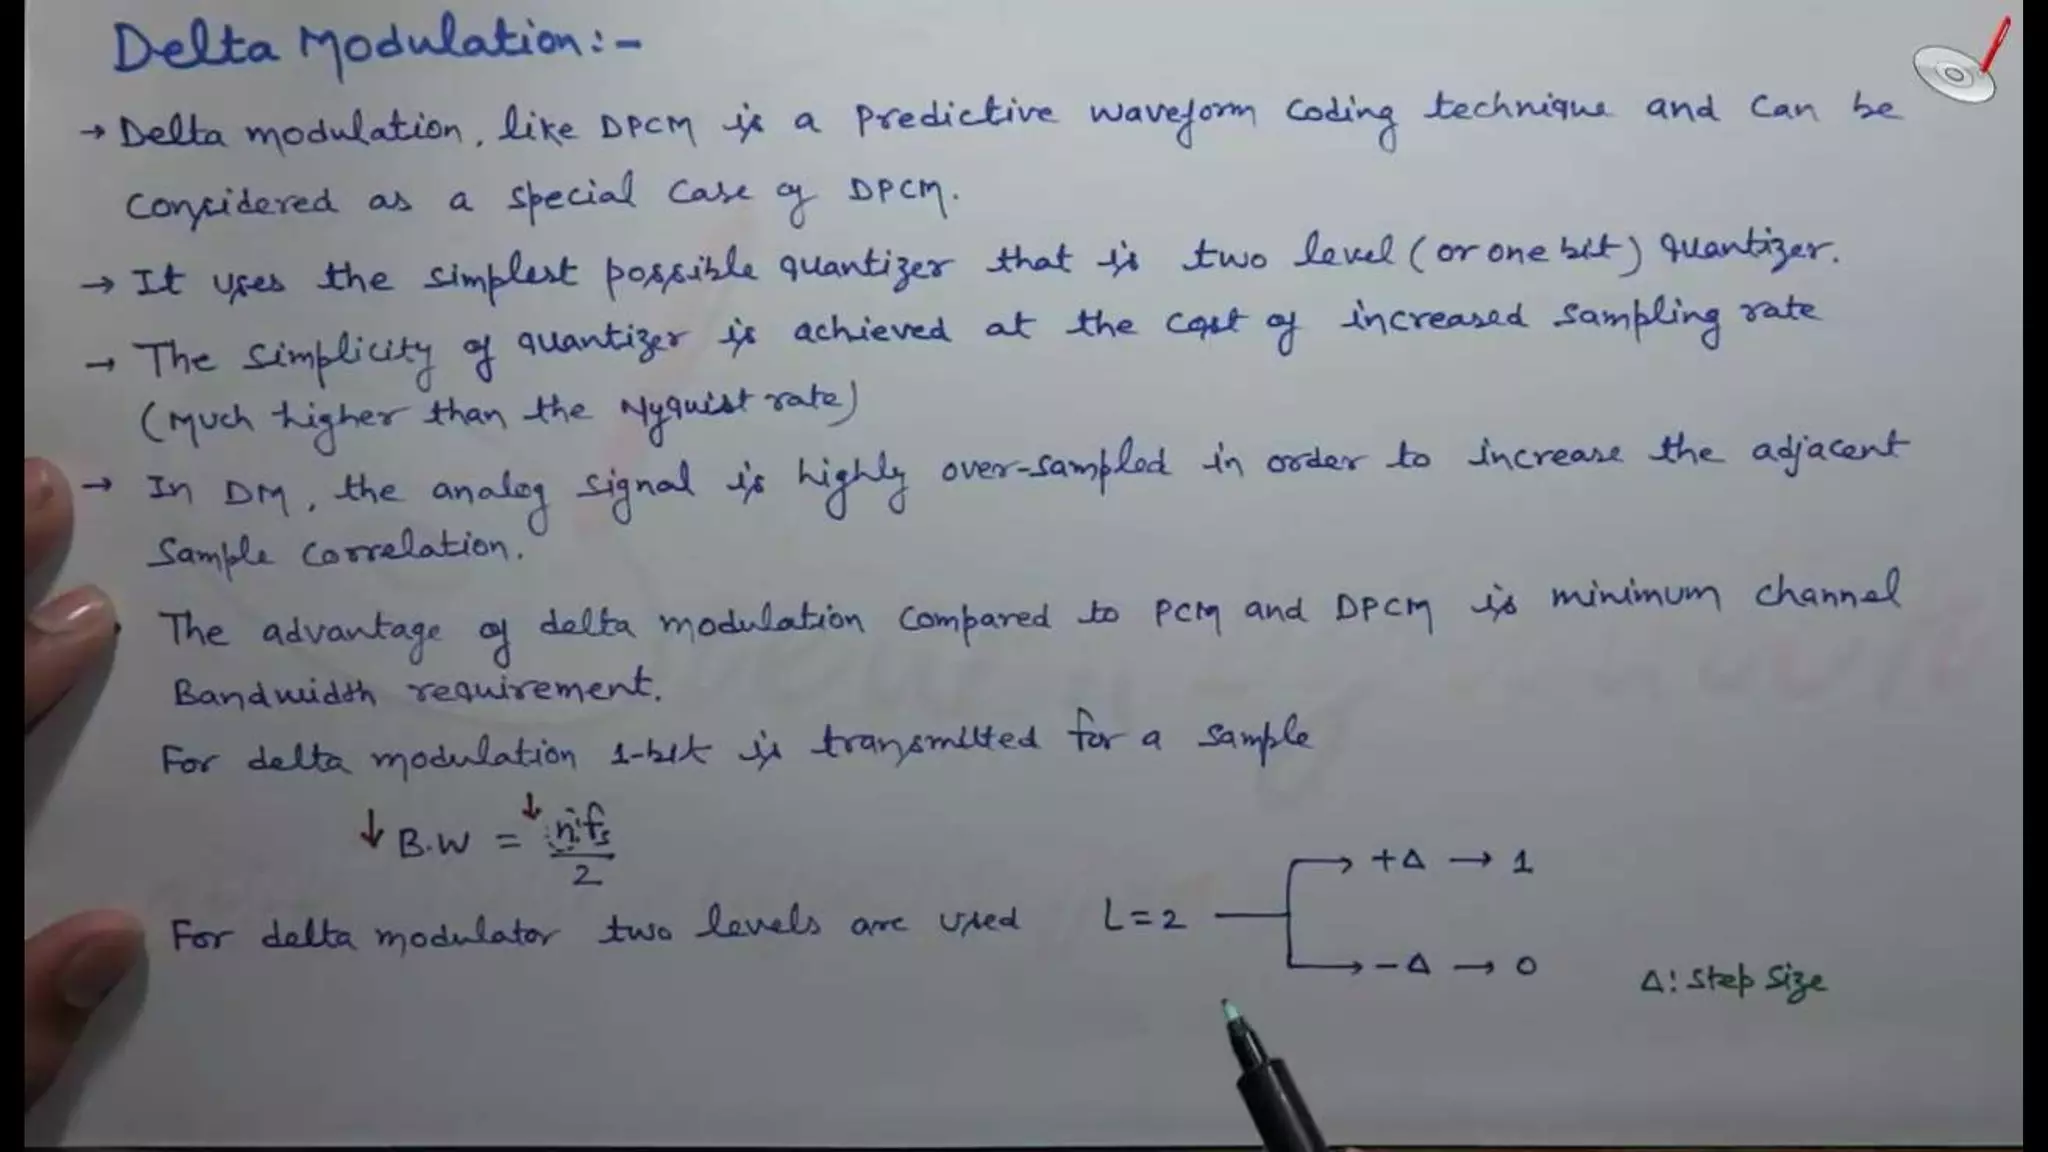 Delta Modulation:-
→ Delta modulation, like DPCM is a Predictive waveform coding technique and can be
considered as a special case of DPCM.
→ It uses the simplest possible quantizer that is two level (or one bit) quantizer.
→ The simplicity of quantizer is achieved at the cost of increased sampling rate
(Much higher than the Nyquist rate)
→ In DM, the analog signal is highly over-sampled in order to increase the adjacent
Sample correlation.
The advantage of delta modulation compared to PCM and DPCM is minimum channel
Bandwidth requirement.
For delta modulation 1-bit is transmitted for a sample
↓ B.W = ↓ nfs/2
For delta modulator two levels are used L=2 → +Δ → 1
→ -Δ → 0
Δ: Step Size